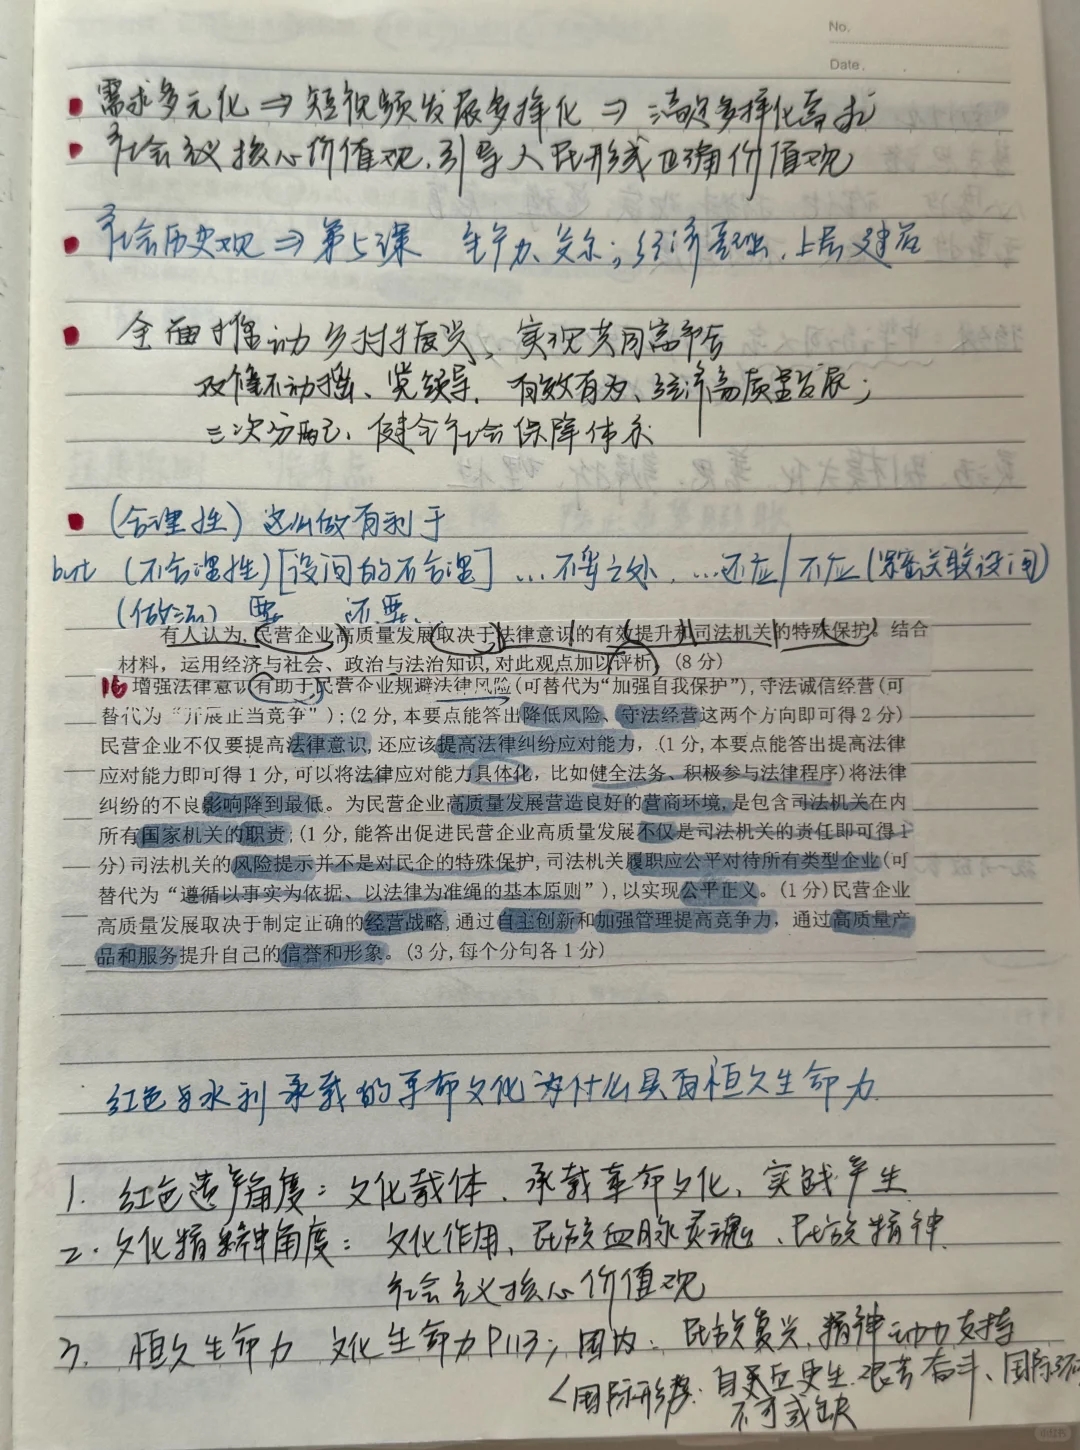 No.
Date.
需求多元化 ⇒ 短视频发展多样化 ⇒ 满足多样化需求
社会主义核心价值观,引导人民形成正确价值观
社会历史观 ⇒ 第5课 生产力、关系;经济基础、上层建筑
全面推动乡村振兴、实现共同富裕
双维不动摇、党领导、有效有为、经济高质量发展;
三次分配、健全社会保障体系
(合理性) 这么做有利于
but (不合理性)[设问的不合理] ...不等之处, ...还应/不应(紧密关联设问)
(做法) 要 还要.
有人认为,民营企业高质量发展取决于法律意识的有效提升和司法机关的特殊保护。结合
材料,运用经济与社会、政治与法治知识,对此观点加以评析。(8 分)
16 增强法律意识有助于民营企业规避法律风险(可替代为“加强自我保护”),守法诚信经营(可
替代为“开展正当竞争”);(2 分,本要点能答出降低风险、守法经营这两个方向即可得 2 分)
民营企业不仅要提高法律意识,还应该提高法律纠纷应对能力,(1 分,本要点能答出提高法律
应对能力即可得 1 分,可以将法律应对能力具体化,比如健全法务、积极参与法律程序)将法律
纠纷的不良影响降到最低。为民营企业高质量发展营造良好的营商环境,是包含司法机关在内
所有国家机关的职责;(1 分,能答出促进民营企业高质量发展不仅是司法机关的责任即可得 1
分)司法机关的风险提示并不是对民企的特殊保护,司法机关履职应公平对待所有类型企业(可
替代为“遵循以事实为依据、以法律为准绳的基本原则”),以实现公平正义。(1 分)民营企业
高质量发展取决于制定正确的经营战略,通过自主创新和加强管理提高竞争力,通过高质量产
品和服务提升自己的信誉和形象。(3 分,每个分句各 1 分)
红色与水利承载的革命文化为什么具有恒久生命力.
1. 红色遗产角度:文化载体、承载革命文化、实践产生
2. 文化精神角度:文化作用、民族血脉灵魂、民族精神
社会主义核心价值观
3. 恒久生命力 文化生命力P113;国内:民族复兴、精神动力支持
<国际形势:自力更生、艰苦奋斗、国际
不可或缺
小红书